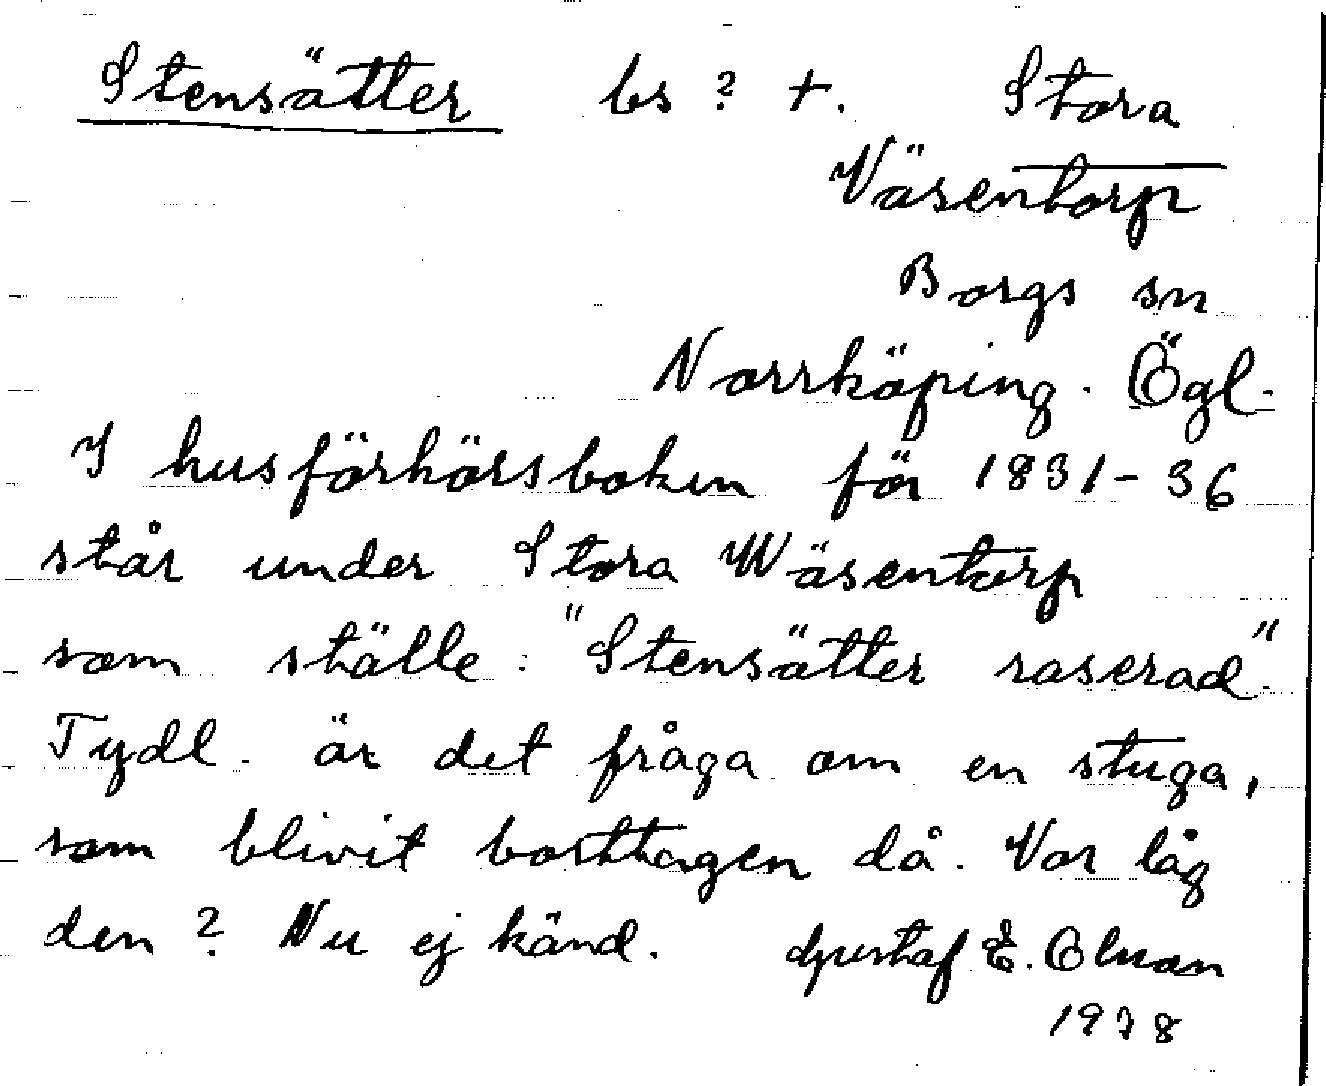 Stensätter bs ? +. Stora
Väsentorp
Borgs sn
Norrköping. Ögl.
I husförhörsboken för 1831-36
står under Stora Wäsentorp
som ställe: "Stensätter raserad".
Tydl. är det fråga om en stuga,
som blivit borttagen då. Var låg
den? Nu ej känd. Gustaf E. Olman
1978